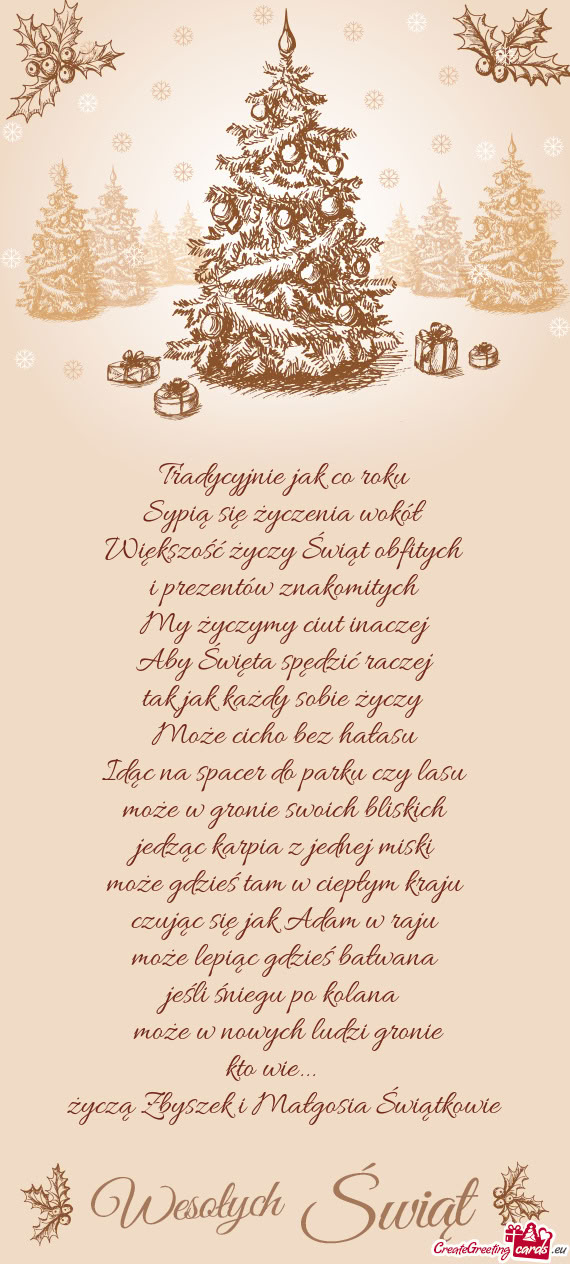 Tradycyjnie jak co roku
Sypią się życzenia wokół
Większość życzy Świąt obfitych
i prezentów znakomitych
My życzymy ciut inaczej
Aby Święta spędzić raczej
tak jak każdy sobie życzy
Może cicho bez hałasu
Idąc na spacer do parku czy lasu
może w gronie swoich bliskich
jedząc karpia z jednej miski
może gdzieś tam w ciepłym kraju
czując się jak Adam w raju
może lepiąc gdzieś bałwana
jeśli śniegu po kolana
może w nowych ludzi gronie
kto wie...
życzą Zbyszek i Małgosia Świątkowie
Wesołych Świąt
CreateGreetingcards.eu